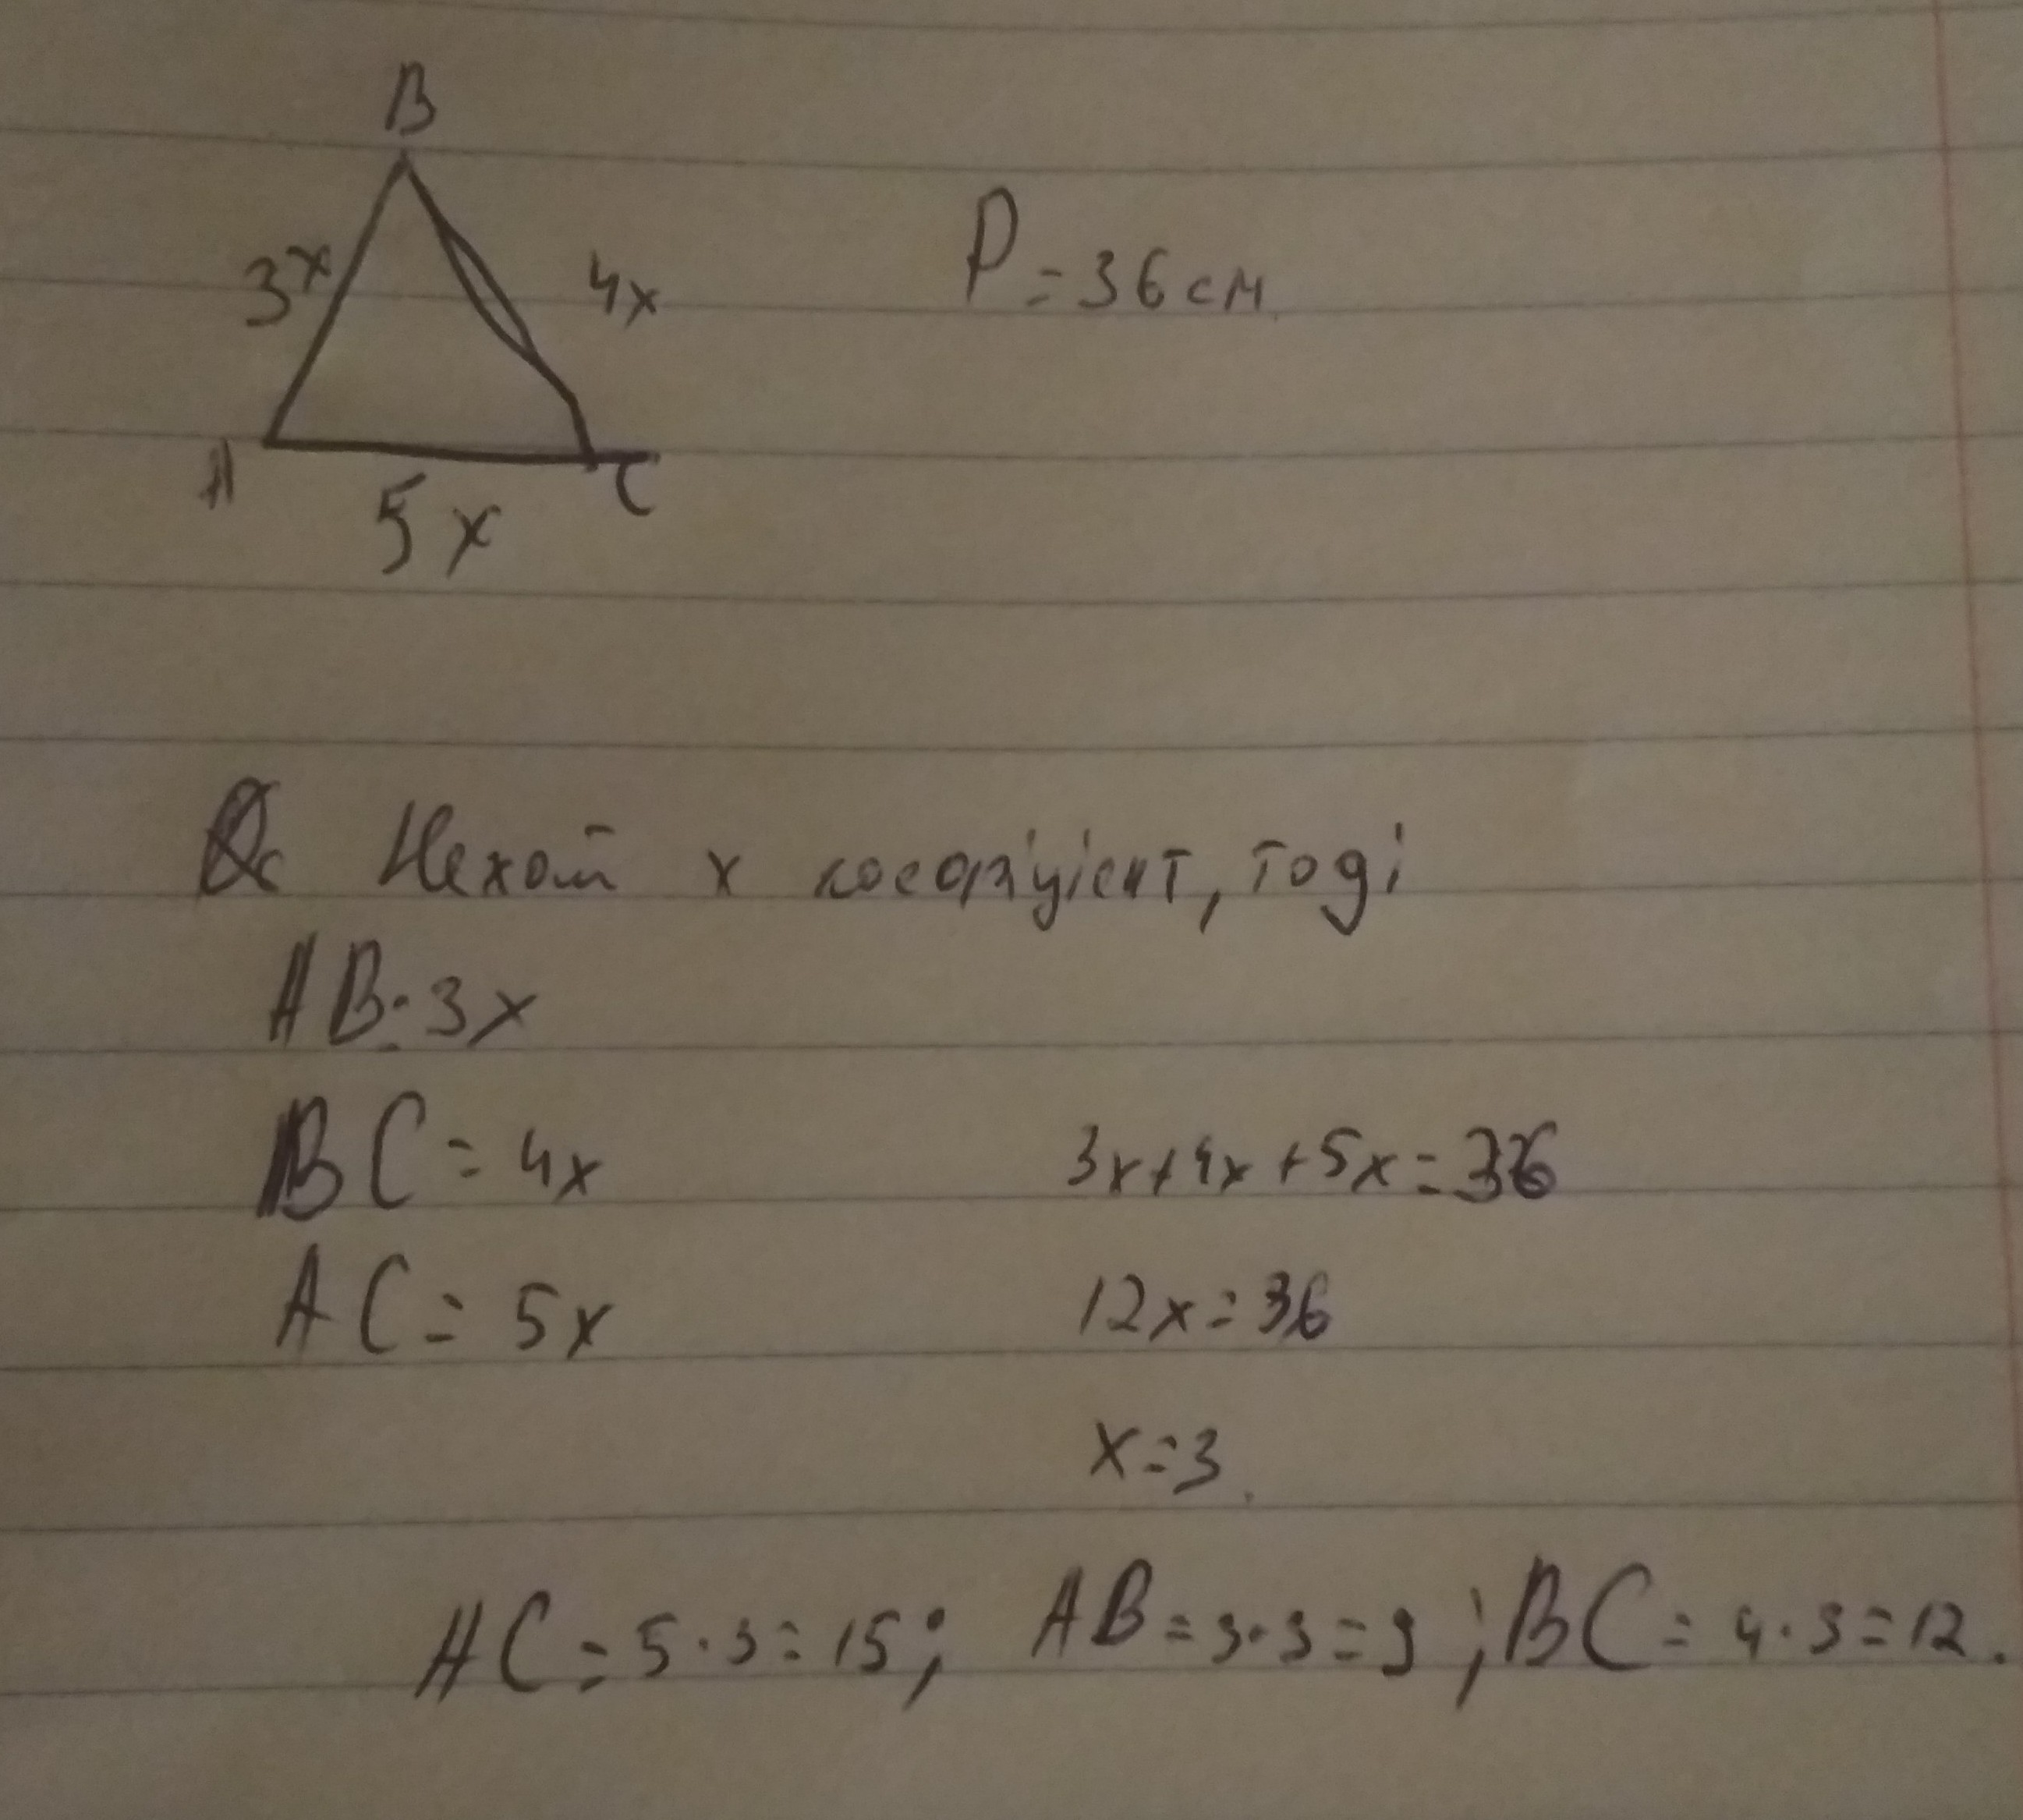 B
3x 4x P=36см
A C
5x
Нехай x коефіцієнт, тоді
AB=3x
BC=4x 3x+4x+5x=36
AC=5x 12x=36
x=3.
AC=5·3=15; AB=3·3=9; BC=4·3=12.